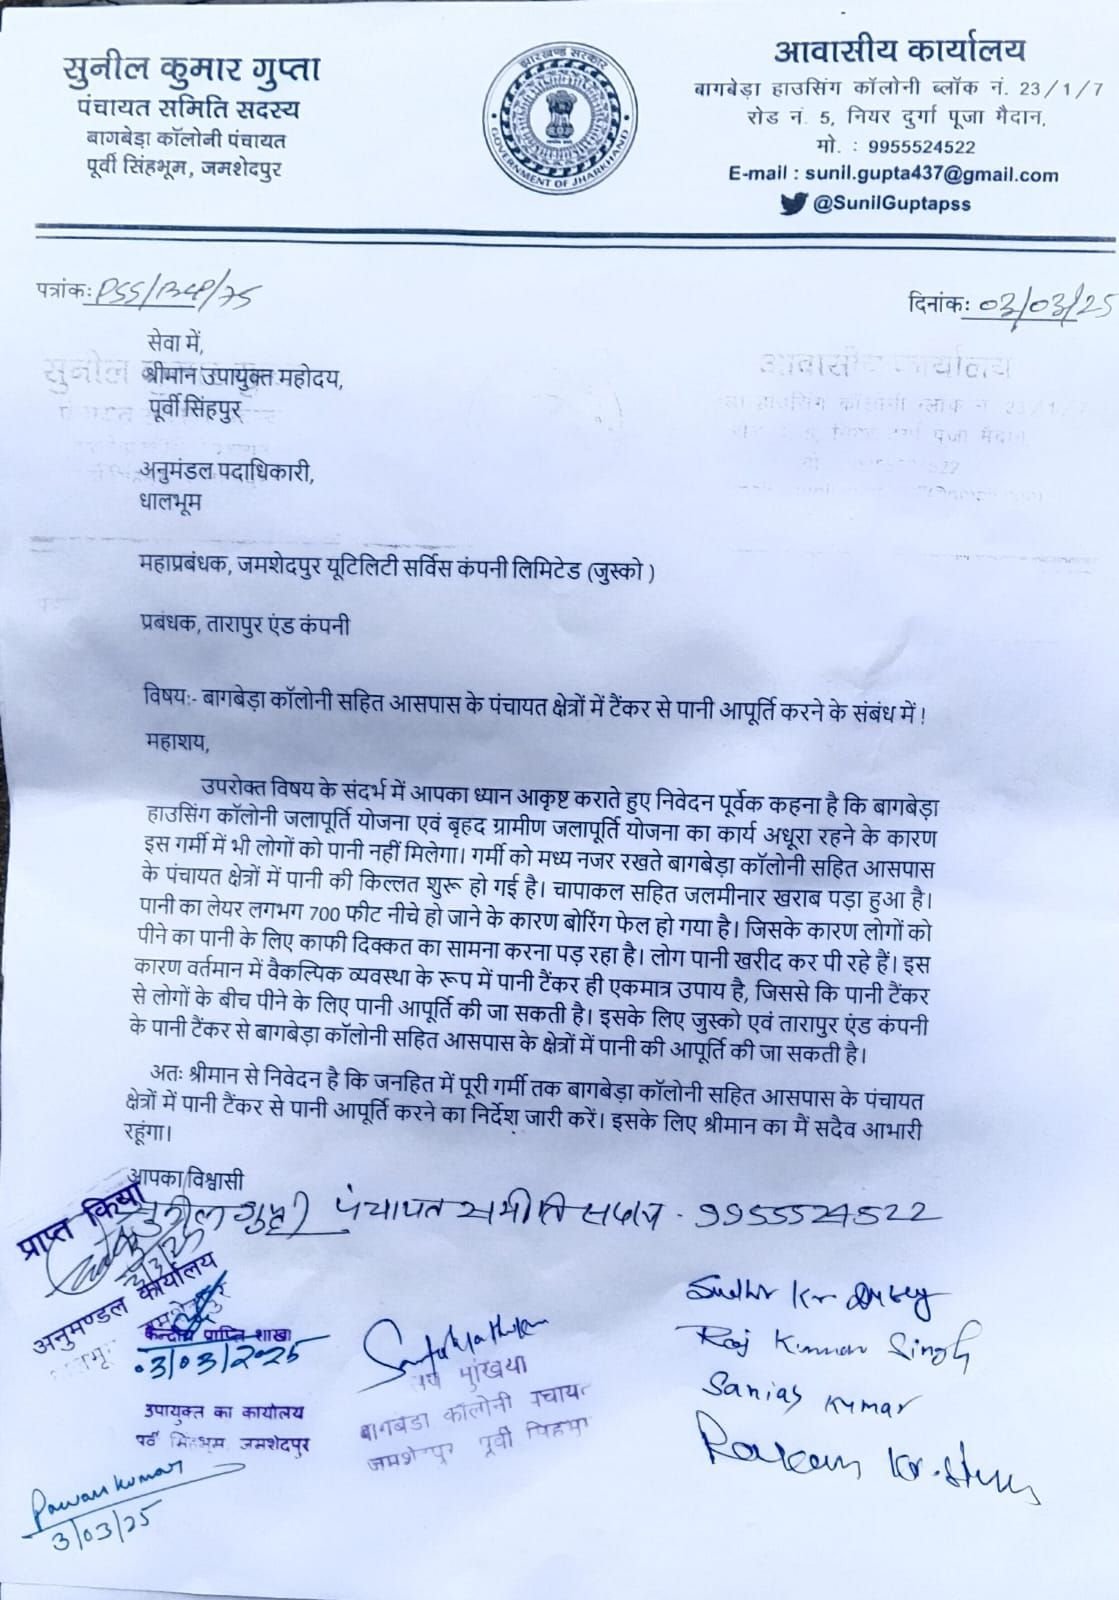 सुनील कुमार गुप्ता
पंचायत समिति सदस्य
बागबेड़ा कॉलोनी पंचायत
पूर्वी सिंहभूम, जमशेदपुर
झारखण्ड सरकार
GOVERNMENT OF JHARKHAND
आवासीय कार्यालय
बागबेड़ा हाउसिंग कॉलोनी ब्लॉक नं. 23/1/7
रोड नं. 5, नियर दुर्गा पूजा मैदान,
मो. : 9955524522
E-mail : sunil.gupta437@gmail.com
@SunilGuptapss
पत्रांकः PSS/BCP/75
दिनांकः 03/03/25
सेवा में,
श्रीमान उपायुक्त महोदय,
पूर्वी सिंहपुर
अनुमंडल पदाधिकारी,
धालभूम
महाप्रबंधक, जमशेदपुर यूटिलिटी सर्विस कंपनी लिमिटेड (जुस्को )
प्रबंधक, तारापुर एंड कंपनी
विषयः- बागबेड़ा कॉलोनी सहित आसपास के पंचायत क्षेत्रों में टैंकर से पानी आपूर्ति करने के संबंध में !
महाशय,
उपरोक्त विषय के संदर्भ में आपका ध्यान आकृष्ट कराते हुए निवेदन पूर्वक कहना है कि बागबेड़ा
हाउसिंग कॉलोनी जलापूर्ति योजना एवं बृहद ग्रामीण जलापूर्ति योजना का कार्य अधूरा रहने के कारण
इस गर्मी में भी लोगों को पानी नहीं मिलेगा। गर्मी को मध्य नजर रखते बागबेड़ा कॉलोनी सहित आसपास
के पंचायत क्षेत्रों में पानी की किल्लत शुरू हो गई है। चापाकल सहित जलमीनार खराब पड़ा हुआ है।
पानी का लेयर लगभग 700 फीट नीचे हो जाने के कारण बोरिंग फेल हो गया है। जिसके कारण लोगों को
पीने का पानी के लिए काफी दिक्कत का सामना करना पड़ रहा है। लोग पानी खरीद कर पी रहे हैं। इस
कारण वर्तमान में वैकल्पिक व्यवस्था के रूप में पानी टैंकर ही एकमात्र उपाय है, जिससे कि पानी टैंकर
से लोगों के बीच पीने के लिए पानी आपूर्ति की जा सकती है। इसके लिए जुस्को एवं तारापुर एंड कंपनी
के पानी टैंकर से बागबेड़ा कॉलोनी सहित आसपास के क्षेत्रों में पानी की आपूर्ति की जा सकती है।
अतः श्रीमान से निवेदन है कि जनहित में पूरी गर्मी तक बागबेड़ा कॉलोनी सहित आसपास के पंचायत
क्षेत्रों में पानी टैंकर से पानी आपूर्ति करने का निर्देश जारी करें। इसके लिए श्रीमान का मैं सदैव आभारी
रहूंगा।
आपका विश्वासी
सुनील गुप्ता पंचायत समिति सदस्य - 9955524522
प्राप्त किया
3/3/25
अनुमण्डल कार्यालय
केन्द्रीय प्राप्ति शाखा
03/03/2025
उपायुक्त का कार्यालय
पूर्वी सिंहभूम, जमशेदपुर
Pawan Kumar
3/03/25
उप मुखिया
बागबेड़ा कॉलोनी पंचायत
जमशेदपुर पूर्वी सिंहभूम
Sudhir Kr Dubey
Raj Kumar Singh
Sanjay Kumar
Kr.